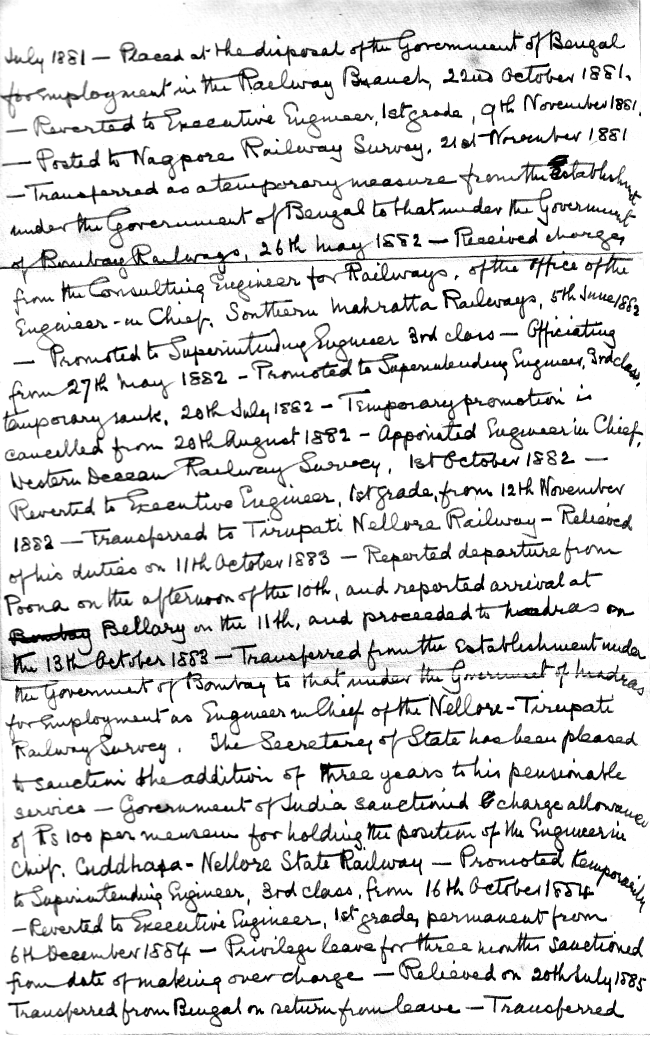 July 1881 — Placed at the disposal of the Government of Bengal
for Employment in the Railway Branch, 22nd October 1881.
— Reverted to Executive Engineer, 1st grade, 9th November 1881.
— Posted to Nagpore Railway Survey, 21st November 1881
— Transferred as a temporary measure from the Establishmt
under the Government of Bengal to that under the Government
of Bombay Railways, 26th May 1882 — Received charge,
from the Consulting Engineer for Railways, of the office of the
Engineer-in Chief, Southern Mahratta Railways, 5th June 1882
— Promoted to Superintending Engineer 3rd class — Officiating
from 27th May 1882 — Promoted to Superintending Engineer, 3rd class,
temporary rank, 20th July 1882 — Temporary promotion is
cancelled from 20th August 1882 — Appointed Engineer in Chief,
Western Deccan Railway Survey, 1st October 1882 —
Reverted to Executive Engineer, 1st grade, from 12th November
1882 — Transferred to Tirupati Nellore Railway — Relieved
of his duties on 11th October 1883 — Reported departure from
Poona on the afternoon of the 10th, and reported arrival at
Bombay Bellary on the 11th, and proceeded to Madras on
the 13th October 1883 — Transferred from the Establishment under
the Government of Bombay to that under the Government of Madras
for Employment as Engineer in Chief of the Nellore-Tirupati
Railway Survey. The Secretary of State has been pleased
to sanction the addition of three years to his pensionable
service — Government of India sanctioned charge allowance
of Rs 100 per mensem for holding the position of the Engineer in
Chief, Cuddhapa-Nellore State Railway — Promoted temporarily
to Superintending Engineer, 3rd class, from 16th October 1884
— Reverted to Executive Engineer, 1st grade, permanent from
6th December 1884 — Privilege leave for three months sanctioned
from date of making over charge — Relieved on 20th July 1885
Transferred from Bengal on return from leave — Transferred